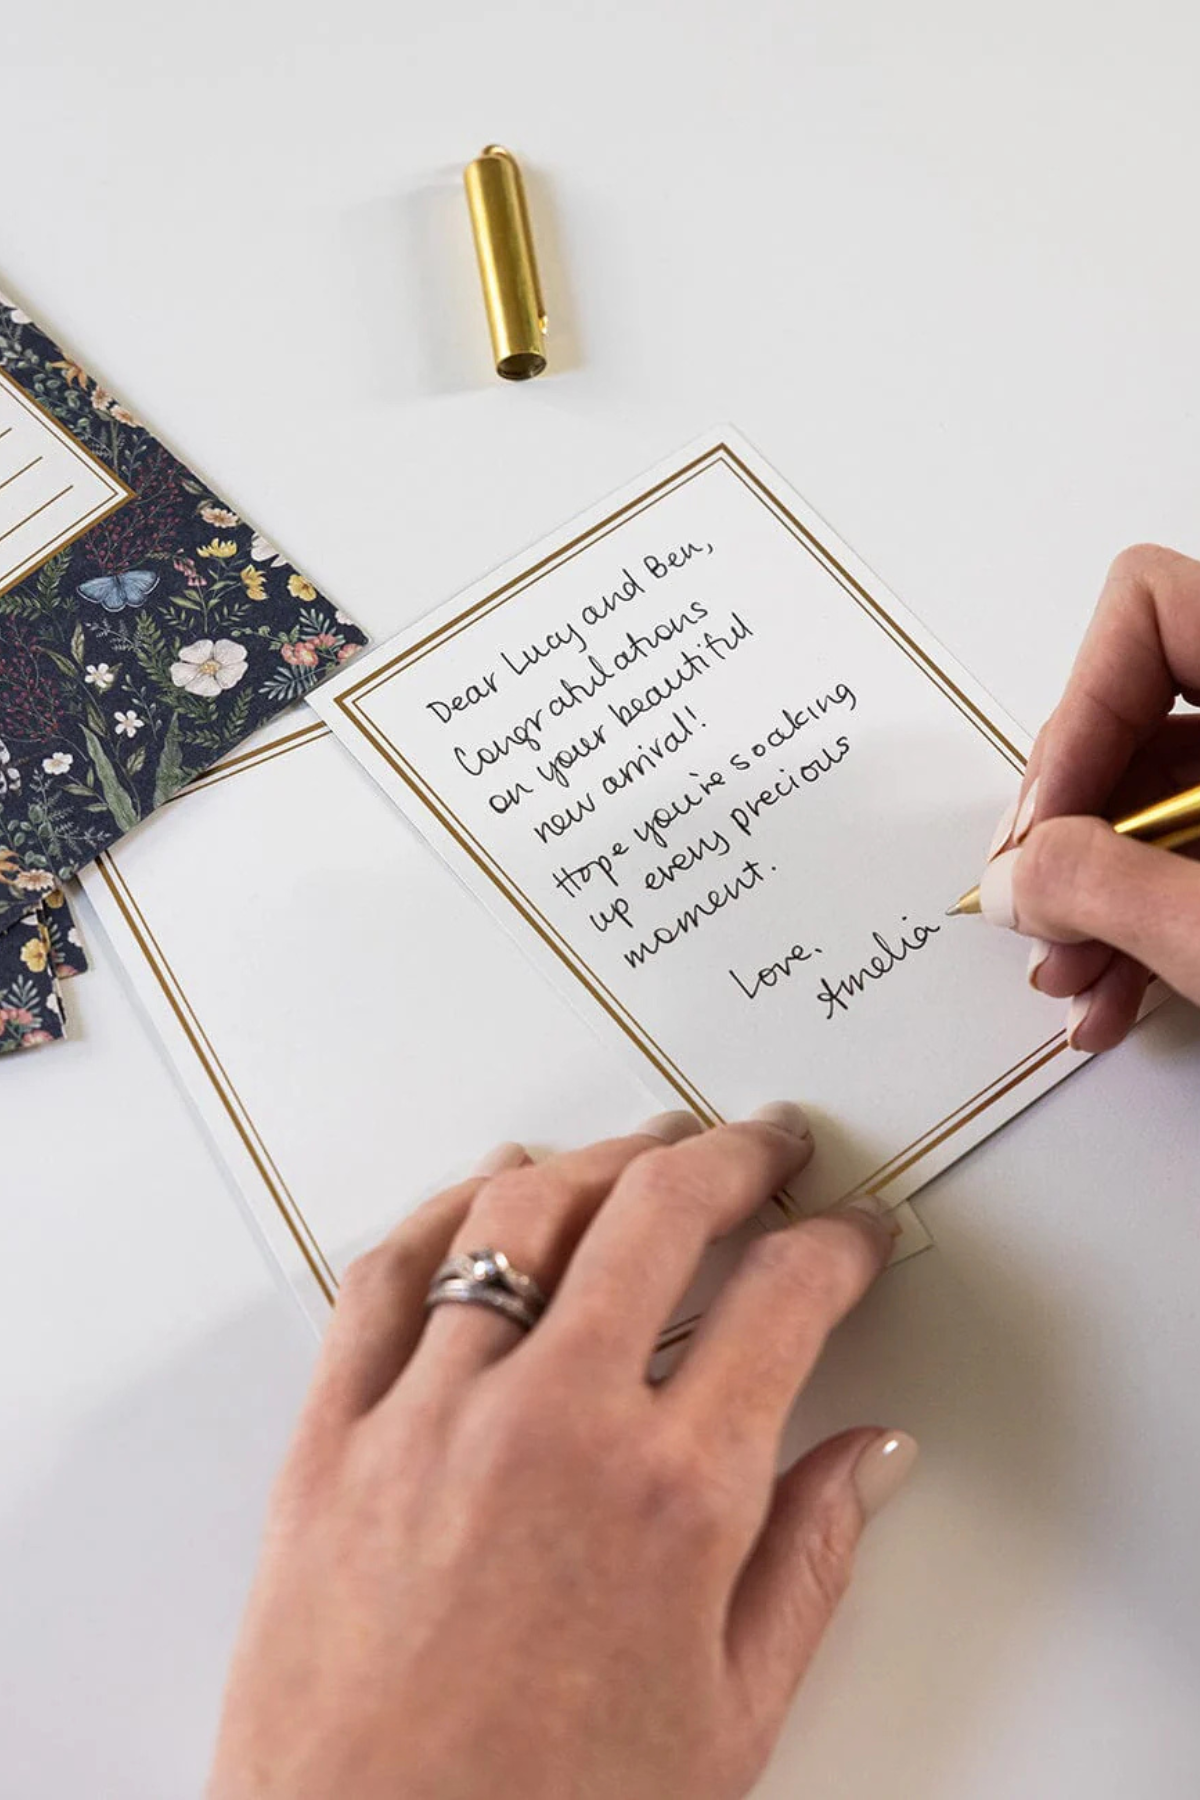 Dear Lucy and Ben,
Congratulations
on your beautiful
new arrival!
Hope you're soaking
up every precious
moment.
Love.
Amelia